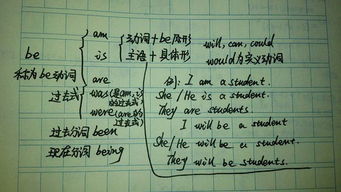 be
称为be动词
am
is
are
was(是am,is的过去式)
were(are的过去式)
过去式
过去分词 been
现在分词 being
动词+be原形
主语+具体形
will, can, could
would为实义动词
例: I am a student.
She/He is a student.
They are students.
I will be a student
She/He will be a student.
They will be students.